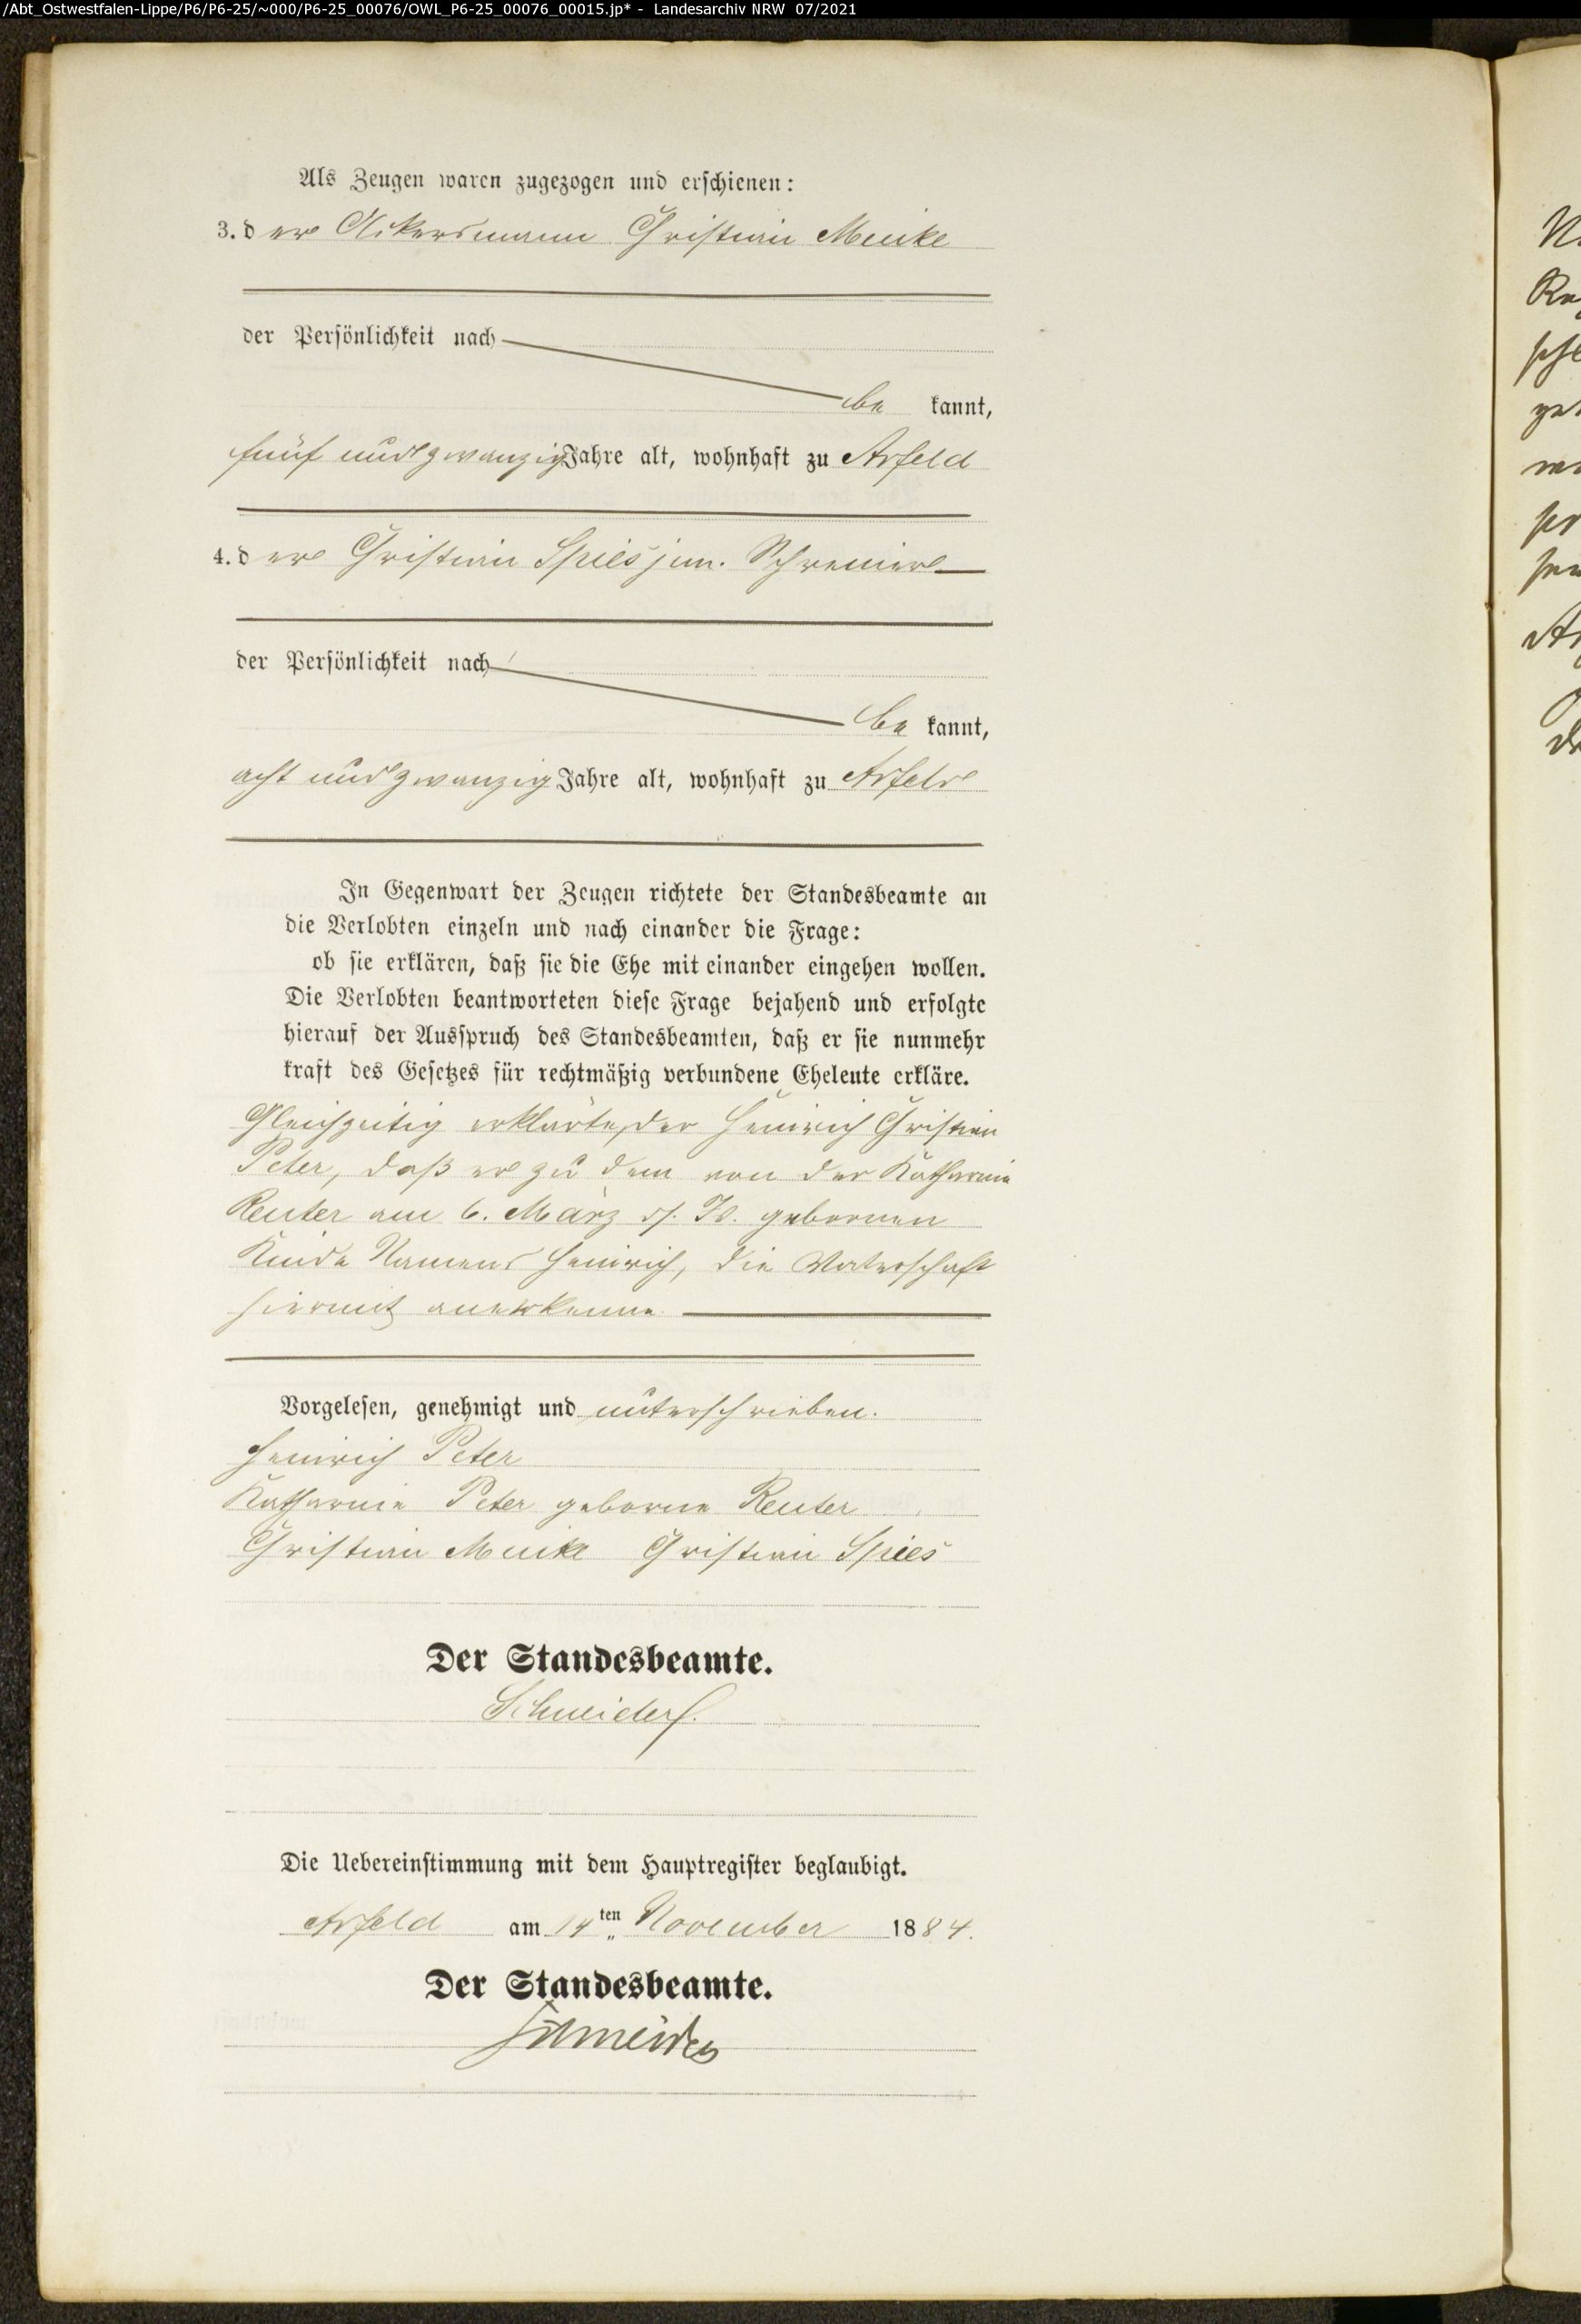 /Abt_Ostwestfalen-Lippe/P6/P6-25/~000/P6-25_00076/OWL_P6-25_00076_00015.jp* - Landesarchiv NRW 07/2021
Als Zeugen waren zugezogen und erschienen:
3. der Ackersmann Christian
der Persönlichkeit nach
be kannt,
fünf und zwanzig Jahre alt, wohnhaft zu Arfeld
4. der Christian Spies jun. Schreiner
der Persönlichkeit nach
be kannt,
acht und zwanzig Jahre alt, wohnhaft zu Arfeld
In Gegenwart der Zeugen richtete der Standesbeamte an
die Verlobten einzeln und nach einander die Frage:
ob sie erklären, daß sie die Ehe mit einander eingehen wollen.
Die Verlobten beantworteten diese Frage bejahend und erfolgte
hierauf der Ausspruch des Standesbeamten, daß er sie nunmehr
kraft des Gesetzes für rechtmäßig verbundene Eheleute erkläre.
Gleichzeitig erklärte, der Heinrich Christian
Peter, daß er zu dem von der Katharine
Reuter am 6. März d. Js. gebornen
Kinde Namens Heinrich, die Vaterschaft
hiermit anerkenne.
Vorgelesen, genehmigt und unterschrieben.
Heinrich Peter
Katharine Peter geborne Reuter
Christian Christian Spies
Der Standesbeamte.
Schneider.
Die Uebereinstimmung mit dem Hauptregister beglaubigt.
Arfeld am 14ten November 1884.
Der Standesbeamte.
Schneider